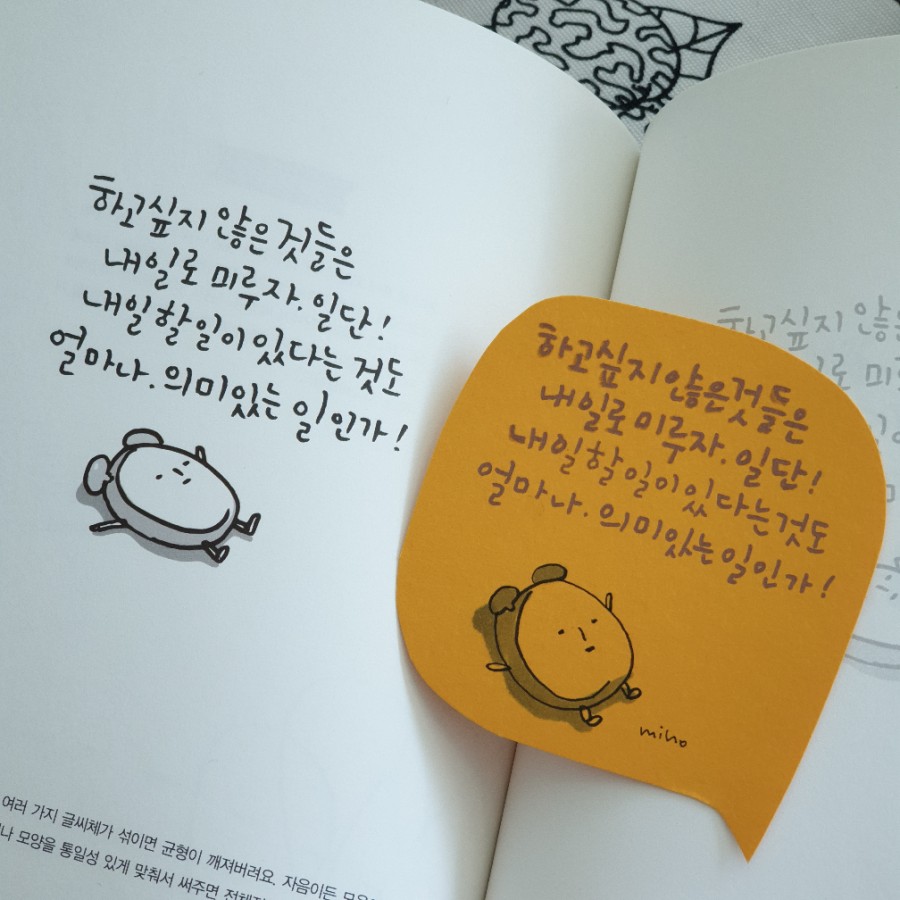 하고싶지 않은 것들은
내일로 미루자. 일단!
내일 할 일이 있다는 것도
얼마나. 의미있는 일인가!
여러 가지 글씨체가 섞이면 균형이 깨져버려요. 자음이든
모양을 통일성 있게 맞춰서 써주면
하고싶지 않은것들은
내일로 미루자. 일단!
내일 할 일이 있다는것도
얼마나. 의미있는일인가!
miho
하고싶지 않은